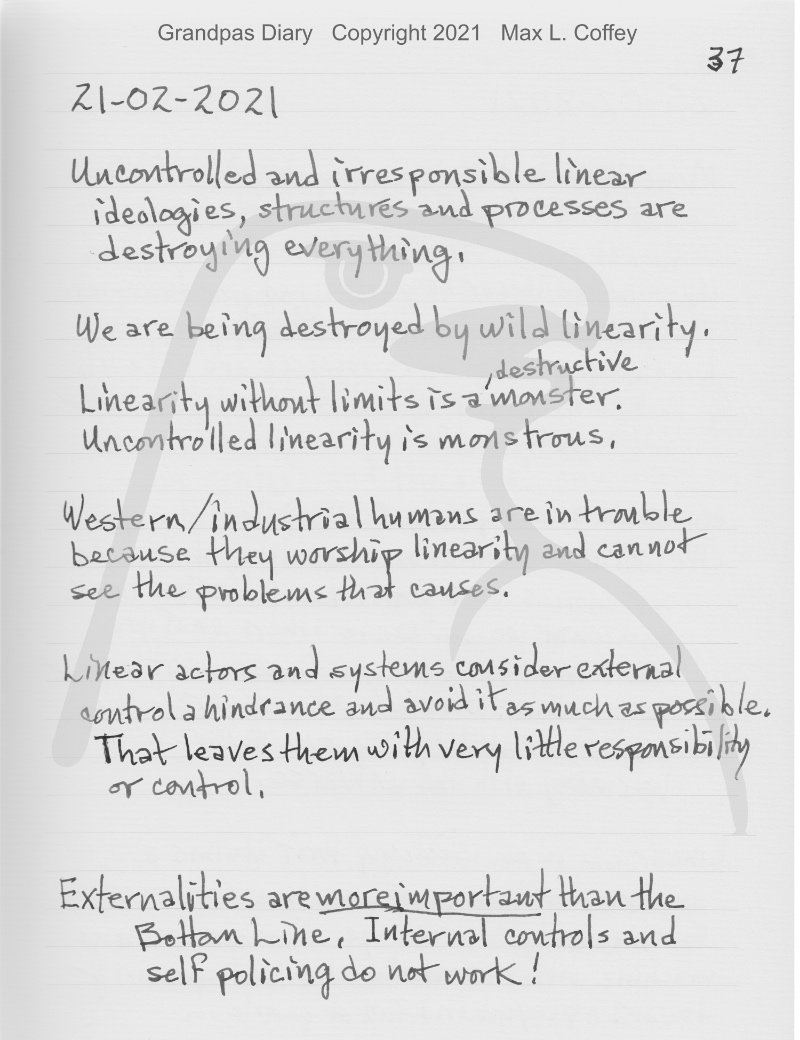 Grandpas Diary Copyright 2021 Max L. Coffey
37
21-02-2021
Uncontrolled and irresponsible linear
ideologies, structures and processes are
destroying everything.
We are being destroyed by wild linearity.
destructive
Linearity without limits is a monster.
Uncontrolled linearity is monstrous.
Western/industrial humans are in trouble
because they worship linearity and cannot
see the problems that causes.
Linear actors and systems consider external
control a hindrance and avoid it as much as possible.
That leaves them with very little responsibility
or control.
Externalities are more important than the
Bottom Line. Internal controls and
self policing do not work!